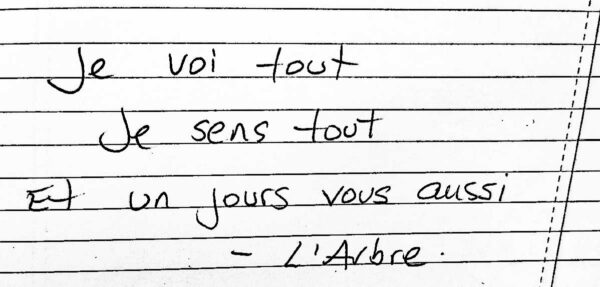 Je voi tout
Je sens tout
Et un jours vous aussi
- L'Arbre.